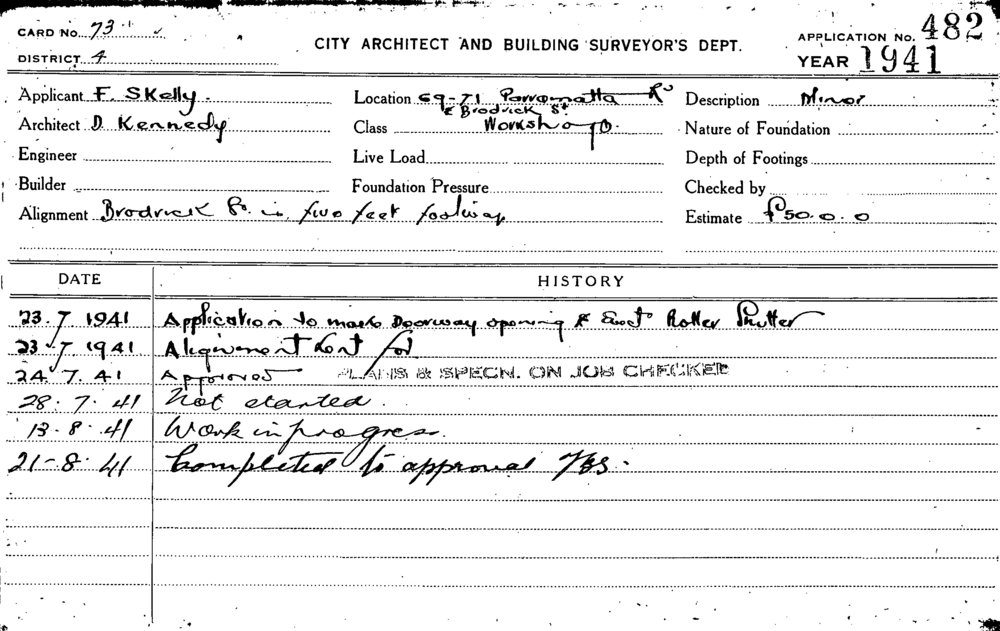 CARD No. 73
DISTRICT 4
CITY ARCHITECT AND BUILDING SURVEYOR'S DEPT.
APPLICATION No. 482
YEAR 1941
Applicant F. Skelly. Location 69-71 Parramatta Rd Description Minor
& Brodrick St.
Architect D Kennedy Class Workshop. Nature of Foundation
Engineer Live Load Depth of Footings
Builder Foundation Pressure Checked by
Alignment Brodrick St. is two feet footway Estimate £50.0.0
DATE HISTORY
23.7 1941 Application to make Doorway opening & Erect Roller Shutter
23.7 1941 Alignment sent for
24.7.41 Approved PLANS & SPECN. ON JOB CHECKED
28.7.41 Not started.
13.8.41 Work in progress.
21-8.41 Completed to approval